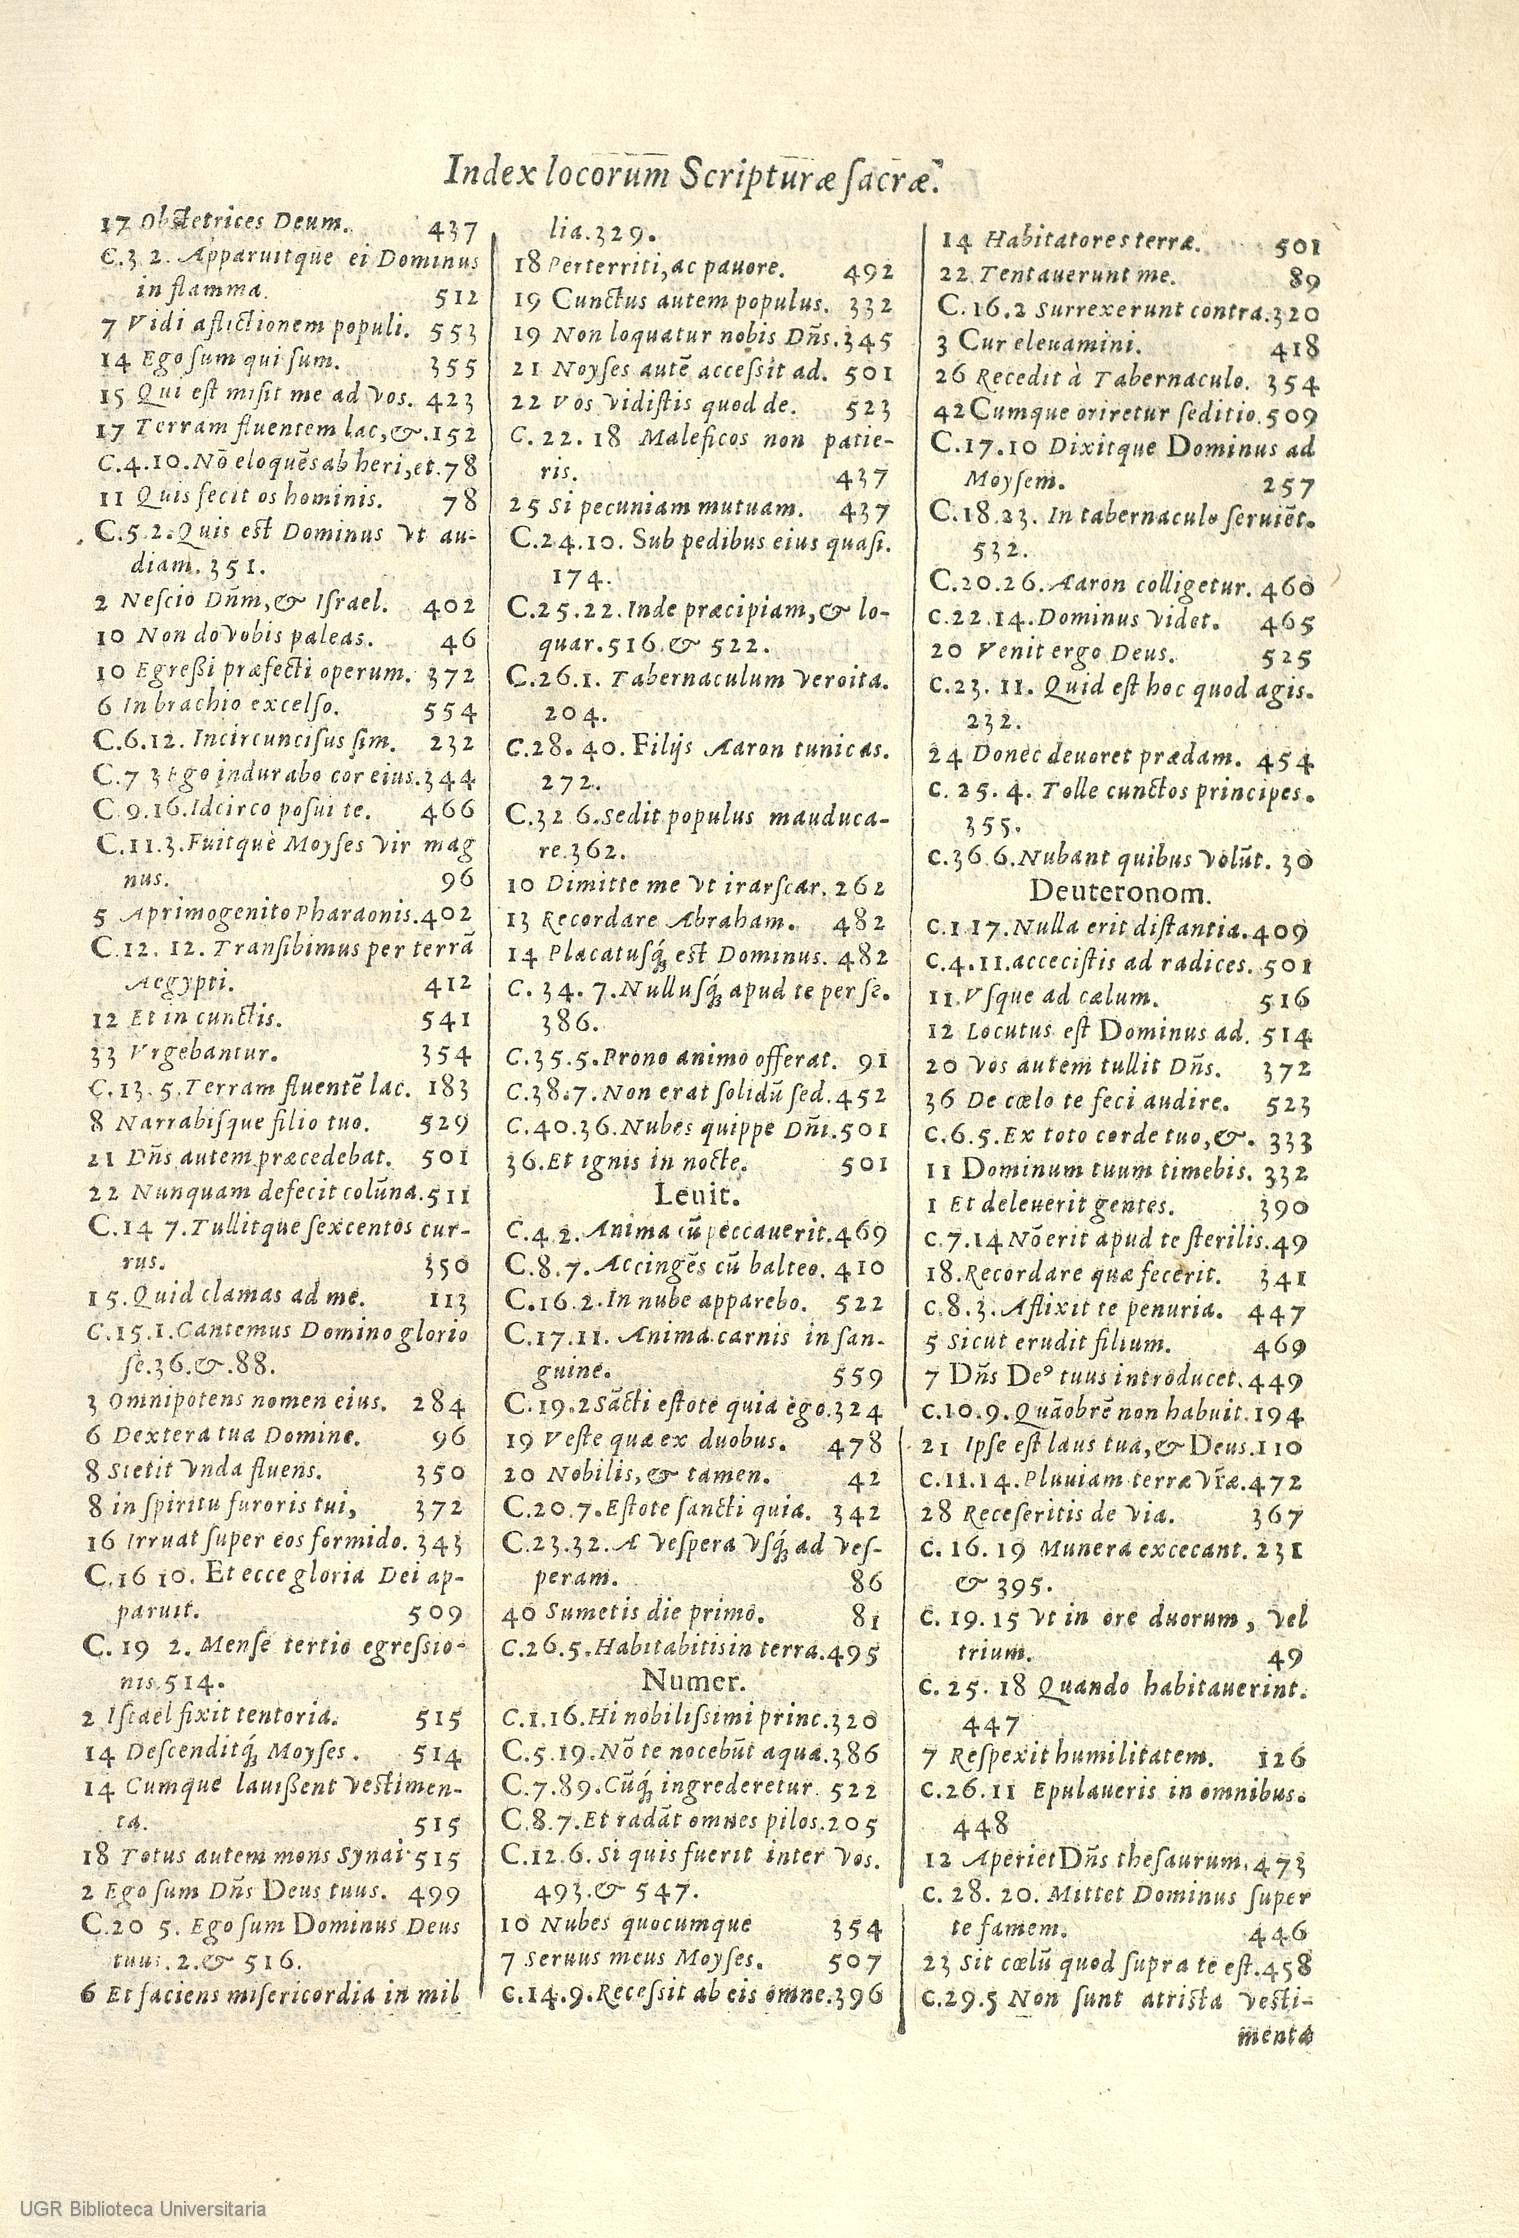 Index locorum Scripturæ sacræ.
17 Obstetrices Deum. 437
C.3 2. Apparuitque ei Dominus
in flamma. 512
7 Vidi aflictionem populi. 553
14 Ego sum qui sum. 355
15 Qui est misit me ad vos. 423
17 Terram fluentem lac, &. 152
C.4.10. Nō eloquēs ab heri, et. 78
11 Quis fecit os hominis. 78
C.5.2. Quis est Dominus vt au-
diam. 351.
2 Nescio Dñm, & Israel. 402
10 Non do vobis paleas. 46
10 Egreßi præfecti operum. 372
6 In brachio excelso. 554
C.6.12. Incircuncisus sim. 232
C.7 3 Ego indurabo cor eius. 344
C 9.16. Idcirco posui te. 466
C.11.3. Fuitquè Moyses vir mag
nus. 96
5 A primogenito Pharaonis. 402
C.12. 12. Transibimus per terrā
Aegypti. 412
12 Et in cunctis. 541
33 Vrgebantur. 354
C.13.5. Terram fluentē lac. 183
8 Narrabisque filio tuo. 529
21 Dñs autem præcedebat. 501
22 Nunquam defecit colūna. 511
C.14 7. Tullitque sexcentos cur-
rus. 350
15. Quid clamas ad me. 113
C.15.1. Cantemus Domino glorio
se. 36. &. 88.
3 Omnipotens nomen eius. 284
6 Dextera tua Domine. 96
8 Stetit vnda fluens. 350
8 in spiritu furoris tui, 372
16 Irruat super eos formido. 343
C.16 10. Et ecce gloria Dei ap-
paruit. 509
C. 19 2. Mense tertio egressio-
nis. 514.
2 Israel fixit tentoria. 515
14 Descenditq́; Moyses. 514
14 Cumque lauißent vestimen-
ta. 515
18 Totus autem mons Synai. 515
2 Ego sum Dñs Deus tuus. 499
C.20 5. Ego sum Dominus Deus
tuus. 2. & 516.
6 Et faciens misericordia in mil
lia. 329.
18 Perterriti, ac pauore. 492
19 Cunctus autem populus. 332
19 Non loquatur nobis Dñs. 345
21 Noyses autē accessit ad. 501
22 Vos vidistis quod de. 523
C.22. 18 Maleficos non patie-
ris. 437
25 Si pecuniam mutuam. 437
C.24.10. Sub pedibus eius quasi.
174.
C.25.22. Inde præcipiam, & lo-
quar. 516. & 522.
C.26.1. Tabernaculum veroita.
204.
C.28. 40. Filijs Aaron tunicas.
272.
C.32 6. Sedit populus mauduca-
re. 362.
10 Dimitte me vt irarscar. 262
13 Recordare Abraham. 482
14 Placatusq́; est Dominus. 482
C. 34. 7. Nullusq́; apud te per se.
386.
C.35.5. Prono animo offerat. 91
C.38.7. Non erat solidū sed. 452
C.40.36. Nubes quippe Dñi. 501
36. Et ignis in nocte. 501
Leuit.
C.4 2. Anima cū peccauerit. 469
C.8.7. Accingēs cū balteo. 410
C.16.2. In nube apparebo. 522
C.17.11. Anima carnis in san-
guine. 559
C.19.2 Sācti estote quia ego. 324
19 Veste quæ ex duobus. 478
20 Nobilis, & tamen. 42
C.20.7. Estote sancti quia. 342
C.23.32. A vespera vsq́; ad ves-
peram. 86
40 Sumetis die primo. 81
C.26.5. Habitabitis in terra. 495
Numer.
C.1.16. Hi nobilissimi princ. 320
C.5.19. Nō te nocebūt aquæ. 386
C.7.89. Cūq́; ingrederetur. 522
C.8.7. Et radāt omnes pilos. 205
C.12.6. Si quis fuerit inter vos.
493. & 547.
10 Nubes quocumque 354
7 Seruus meus Moyses. 507
C.14.9. Recessit ab eis omne. 396
14 Habitatores terræ. 501
22 Tentauerunt me. 89
C.16.2 Surrexerunt contra. 320
3 Cur eleuamini. 418
26 Recedit à Tabernaculo. 354
42 Cumque oriretur seditio. 509
C.17.10 Dixitque Dominus ad
Moysem. 257
C.18.23. In tabernaculo seruiēt.
532.
C.20.26. Aaron colligetur. 460
C.22.14. Dominus videt. 465
20 Venit ergo Deus. 525
C.23. 11. Quid est hoc quod agis.
232.
24 Donec deuoret prædam. 454
C. 25. 4. Tolle cunctos principes.
355.
C.36 6. Nubant quibus volūt. 30
Deuteronom.
C.1 17. Nulla erit distantia. 409
C.4.11. accecistis ad radices. 501
11. Vsque ad cælum. 516
12 Locutus est Dominus ad. 514
20 Vos autem tullit Dñs. 372
36 De cœlo te feci audire. 523
C.6.5. Ex toto corde tuo, &. 333
11 Dominum tuum timebis. 332
1 Et deleuerit gentes. 390
C.7.14 Nō erit apud te sterilis. 49
18. Recordare quæ fecerit. 341
C.8.3. Aflixit te penuria. 447
5 Sicut erudit filium. 469
7 Dñs De⁹ tuus introducet. 449
C.10.9. Quāobrē non habuit. 194
21 Ipse est laus tua, & Deus. 110
C.11.14. Pluuiam terræ vr̄æ. 472
28 Receseritis de via. 367
C. 16. 19 Munera excecant. 231
& 395.
C. 19. 15 Vt in ore duorum, vel
trium. 49
C. 25. 18 Quando habitauerint.
447
7 Respexit humilitatem. 126
C.26.11 Epulaueris in omnibus.
448
12 Aperiet Dñs thesaurum. 473
C. 28. 20. Mittet Dominus super
te famem. 446
23 Sit cœlū quod supra te est. 458
C.29.5 Non sunt atrista vesti-
mentæ
UGR Biblioteca Universitaria